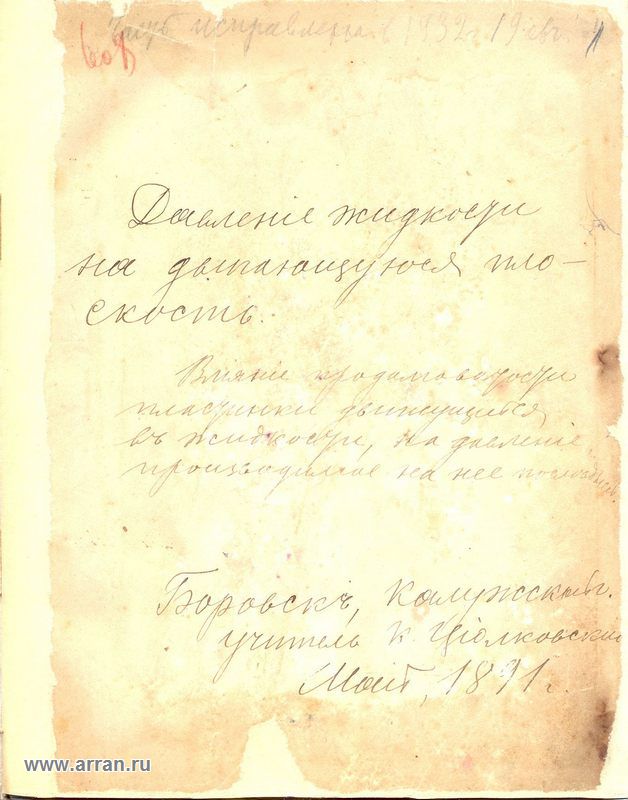 исправлена в 1932 г 19 авг
Давленіе жидкости
на двигающуюся пло-
скость.
Вліяніе продолговатости
пластинки движущейся
въ жидкости, на давленіе,
производимое на нее
Боровскъ, Калужской г.
учитель К. Ціолковский
Май, 1891 г.
www.arran.ru